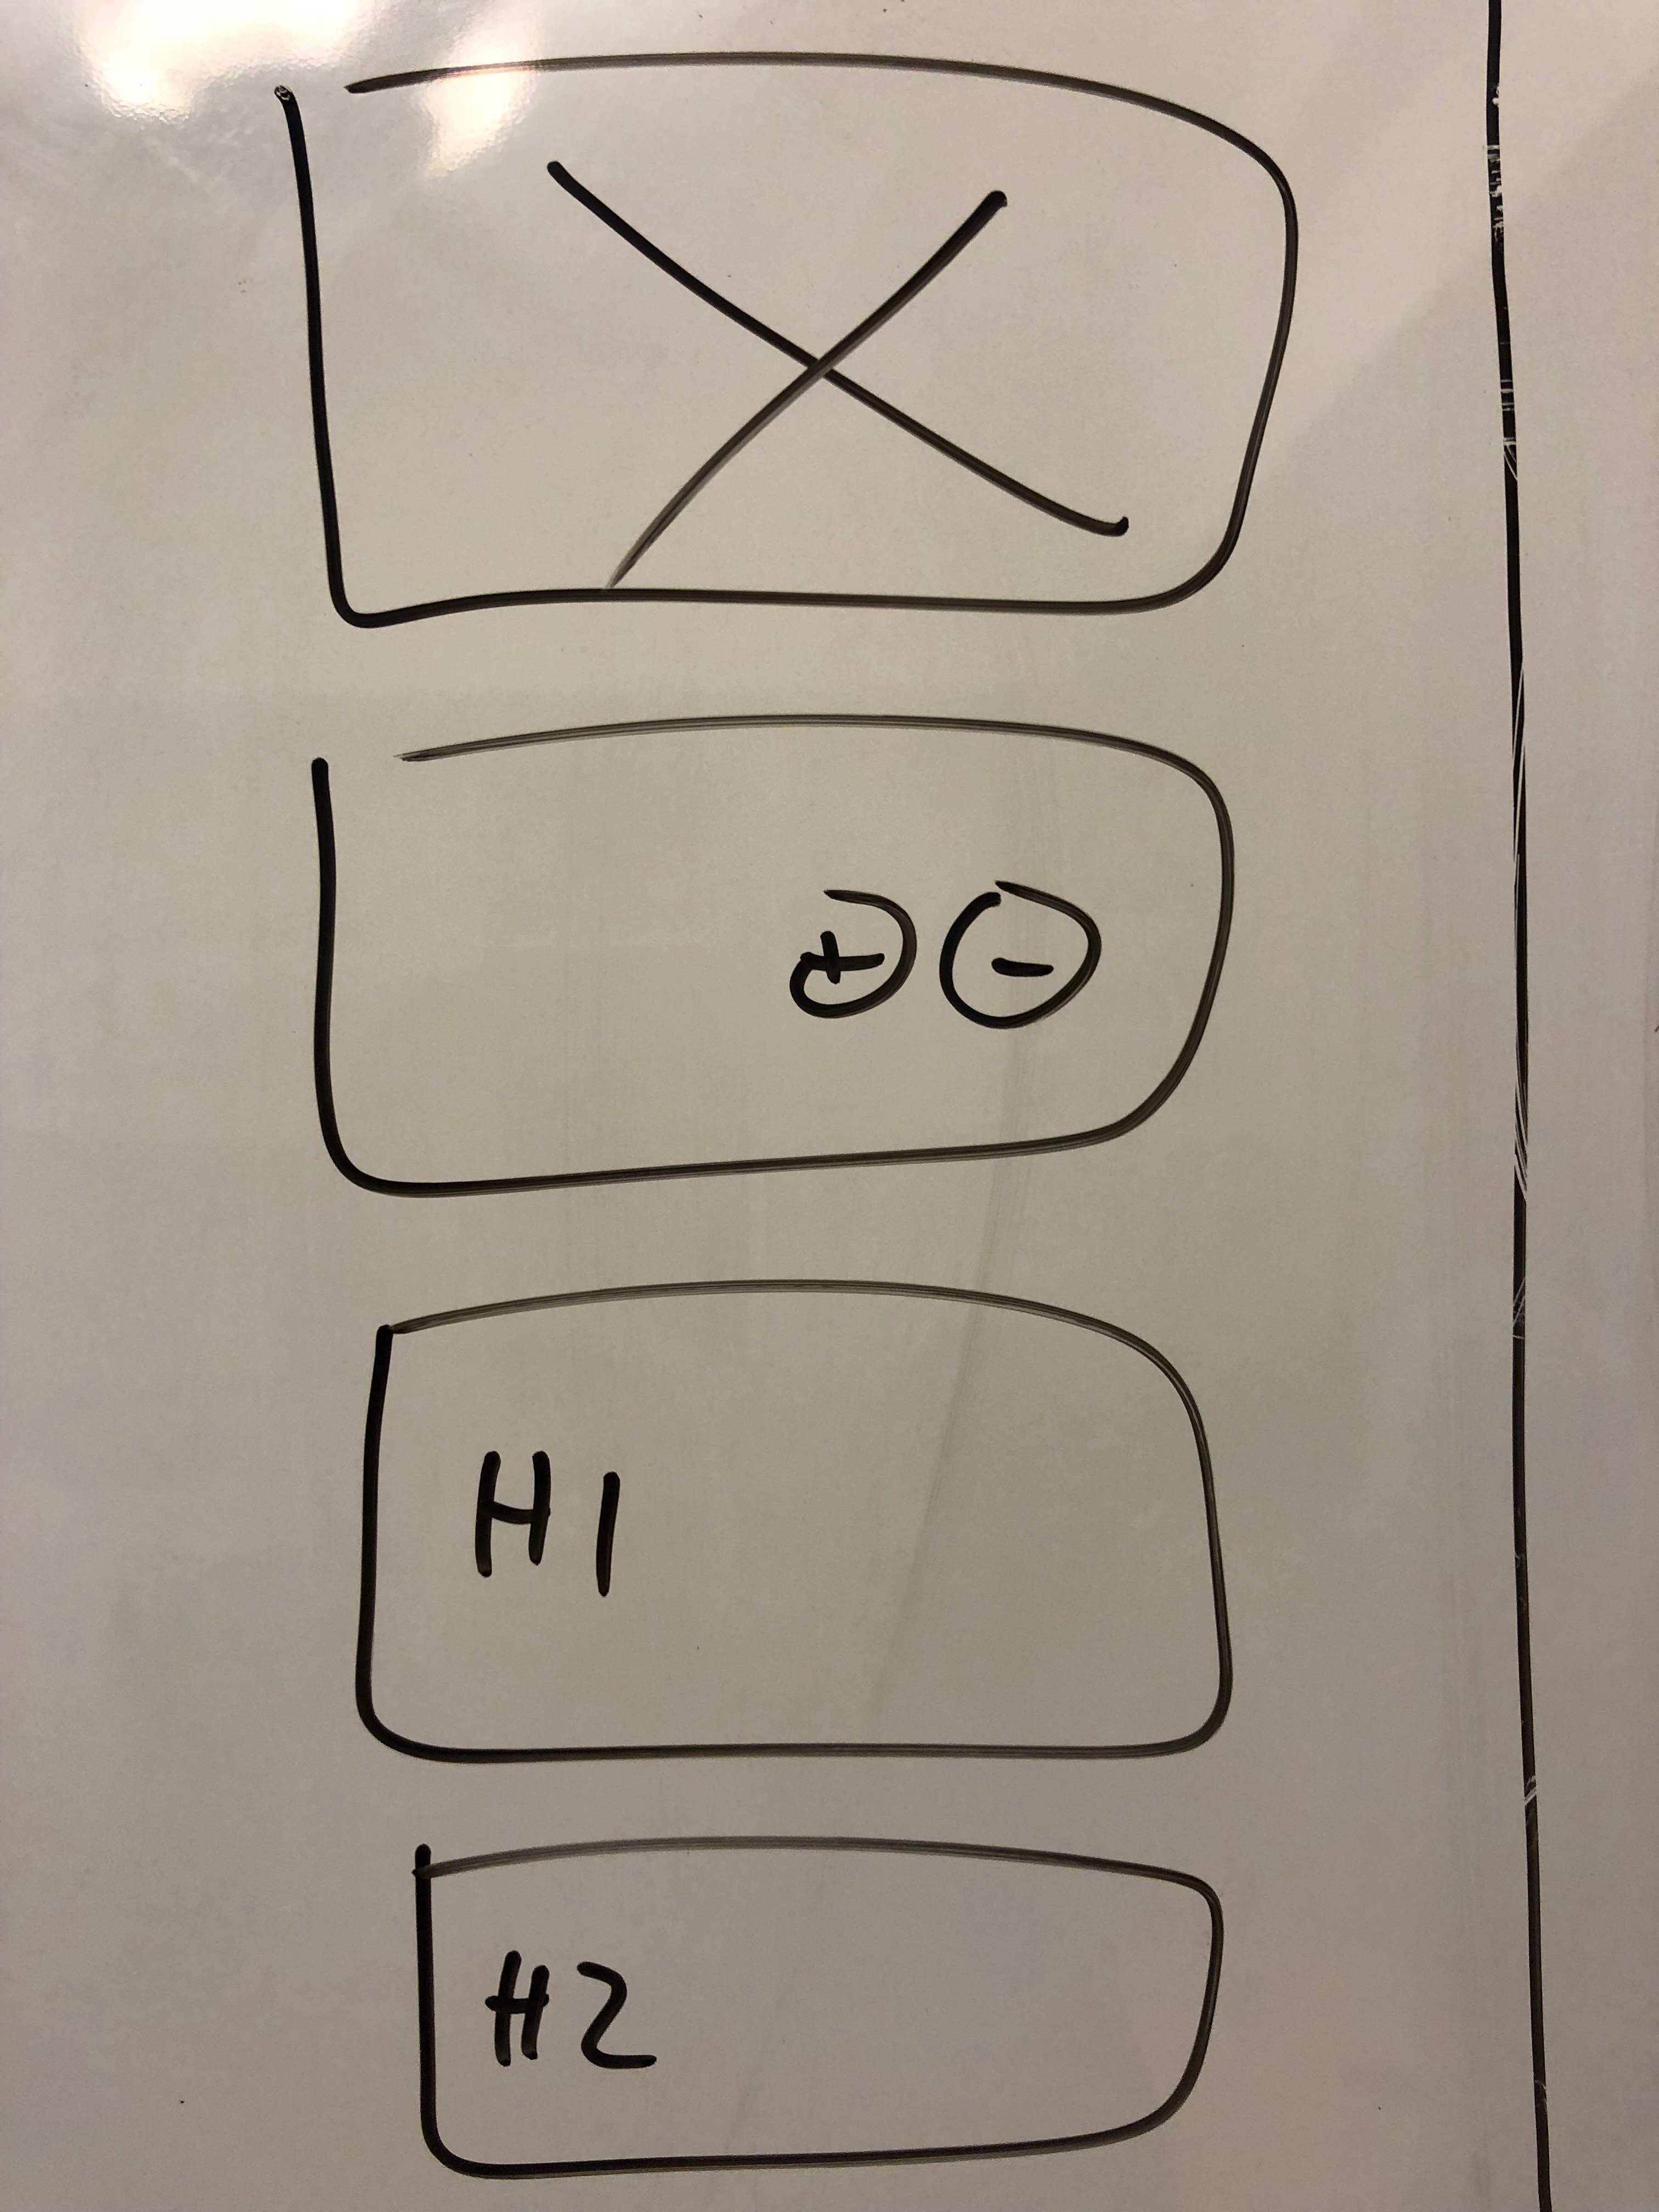 + -
H1
H2